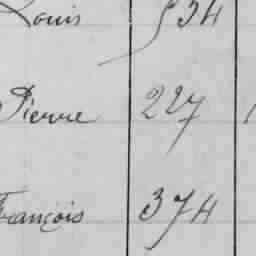 Louis 534
Pierre 227
François 374